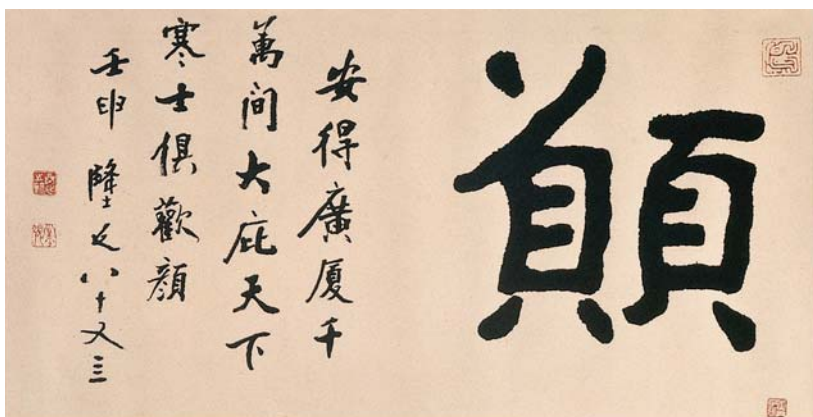 安得廣厦千
萬間大庇天下
寒士俱歡顏
壬申 隆延八十又三